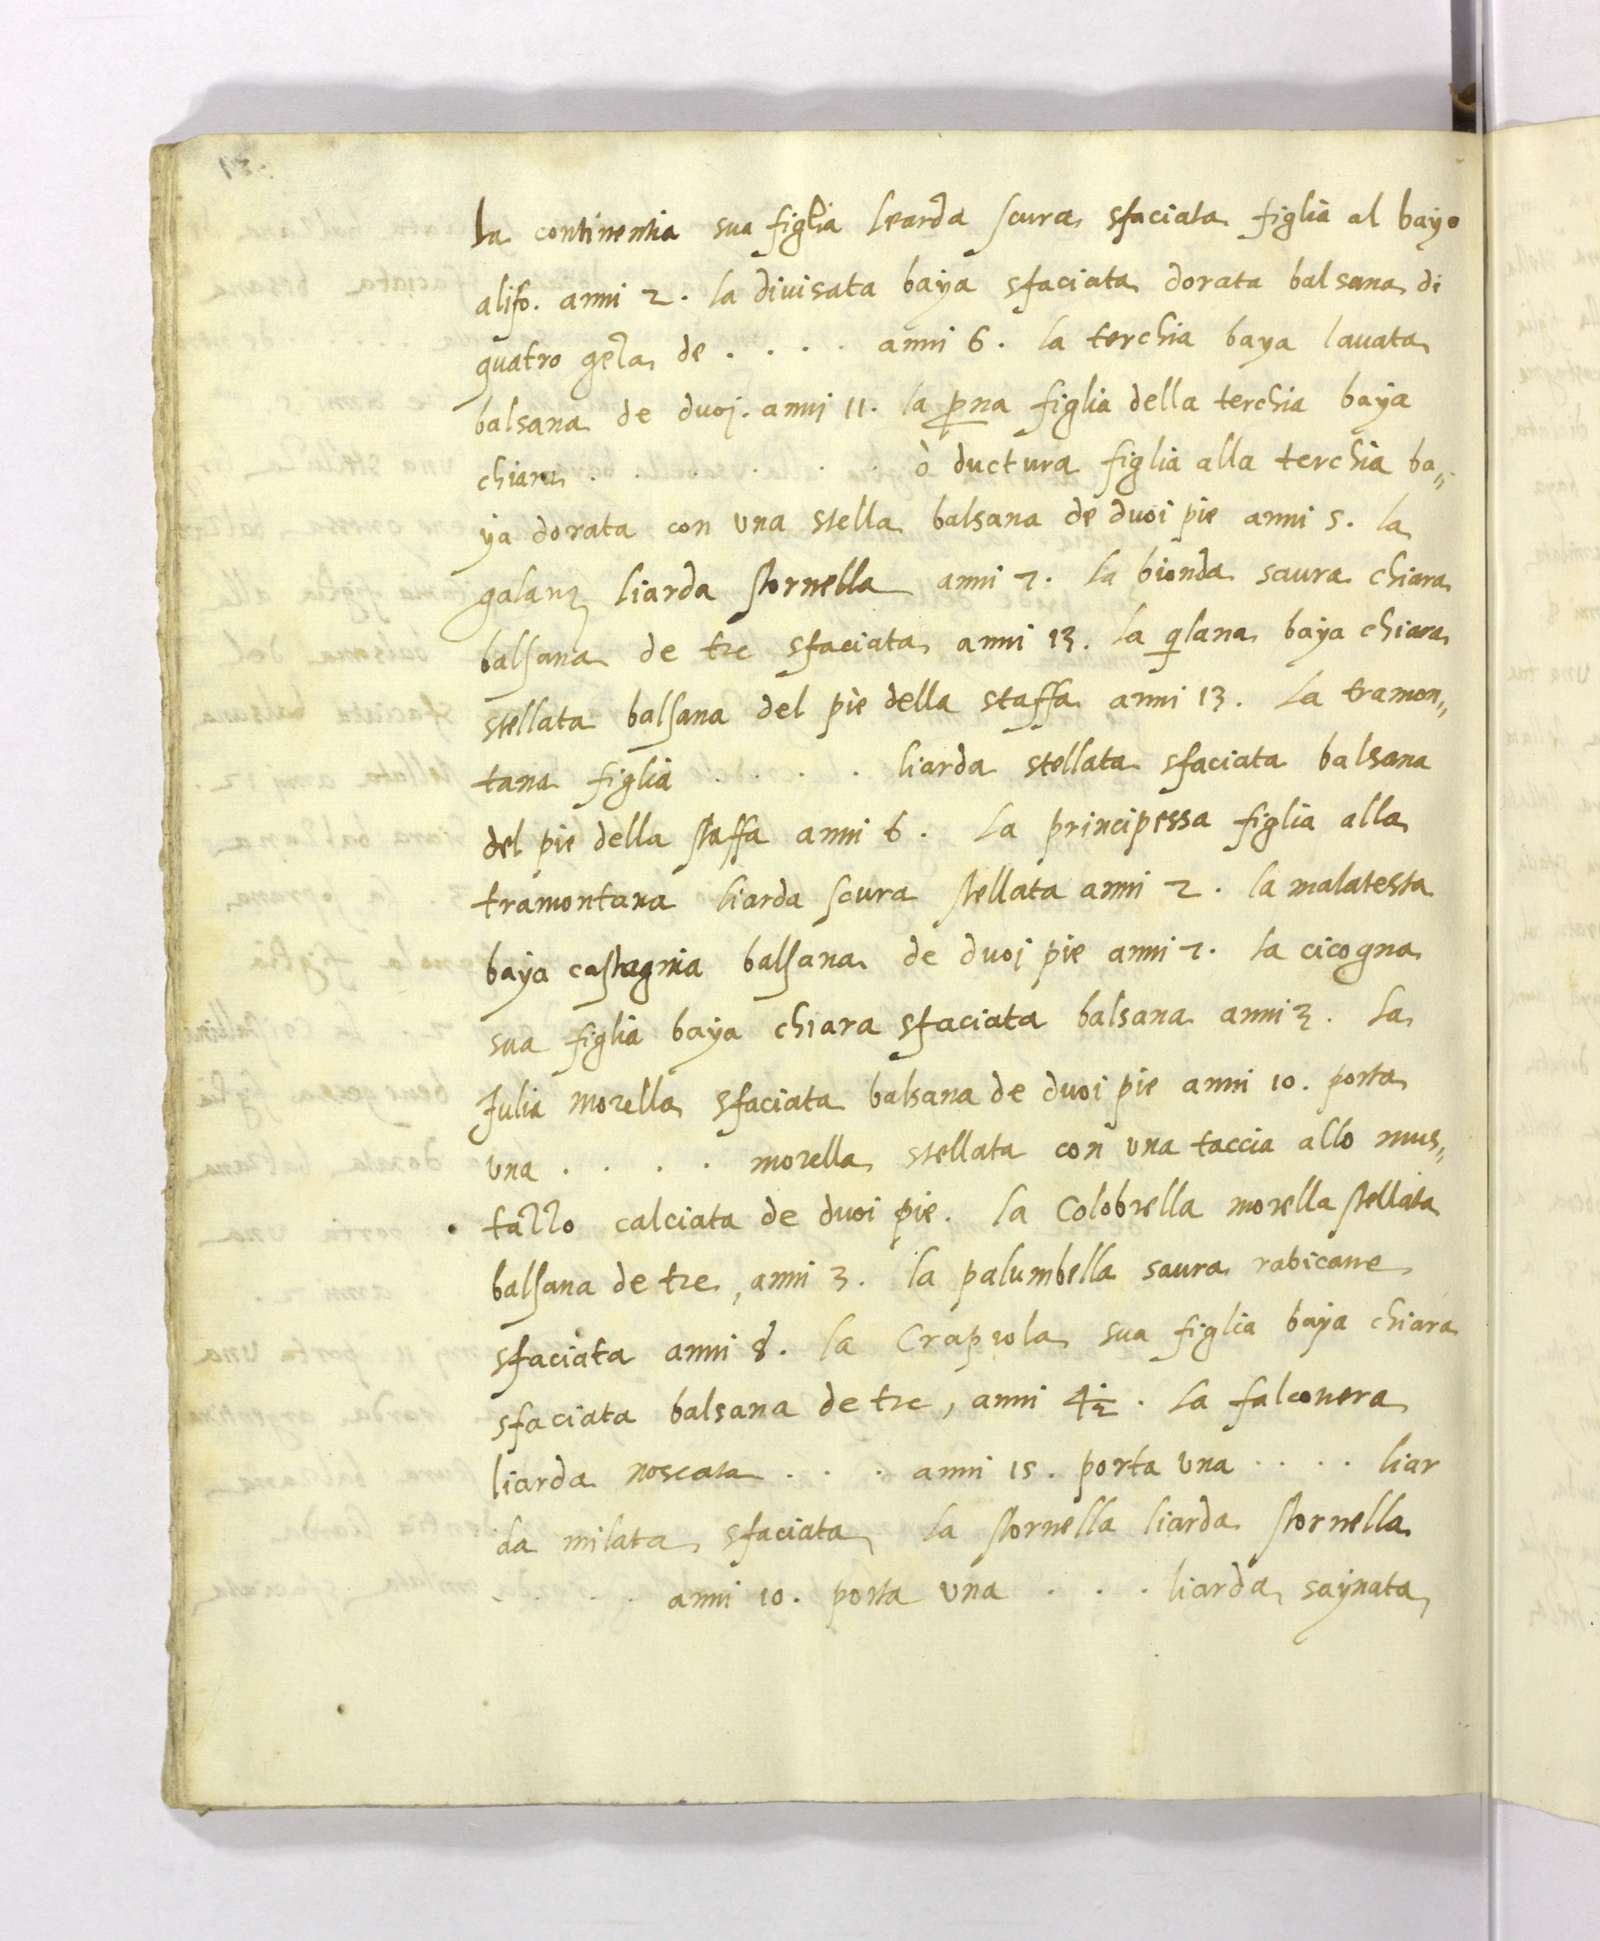 La continentia sua figlia learda scura sfaciata figlia al bayo
alifo. anni 2. la divisata baya sfaciata dorata balsana di
quatro gela de . . . . anni 6. la terchia baya lavata
balsana de duoj. anni 11. la p̱na figlia della terchia baya
chiara . . . . . . ò ductura figlia alla terchia ba„
ya dorata con una stella balsana de duoi pie anni 5. la
liarda stornella anni 2. la bionda saura chiara
balsana de tre sfaciata anni 13. la baya chiara
stellata balsana del piè della staffa anni 13. La tramon„
tana figlia . . . . liarda stellata sfaciata balsana
del pie della staffa anni 6. La principessa figlia alla
tramontana liarda scura stellata anni 2. la malatesta
baya castagnia balsana de duoj pie anni 2. la cicogna
sua figlia baya chiara sfaciata balsana anni 3. La
Julia morella sfaciata balsana de duoi pie anni 10. porta
una . . . . morella stellata con una taccia allo mus„
tazzo calciata de duoi pie. la Colobrella morella stellata
balsana de tre, anni 3. la palumbella saura rabicane
sfaciata anni 8. la Crapiola sua figlia baya chiara
sfaciata balsana de tre, anni 4½. La falconera
liarda moscata . . . anni 15. porta una . . . . liar
da milata sfaciata la stornella liarda stornella
. . . . anni 10. porta una . . . liarda saynata